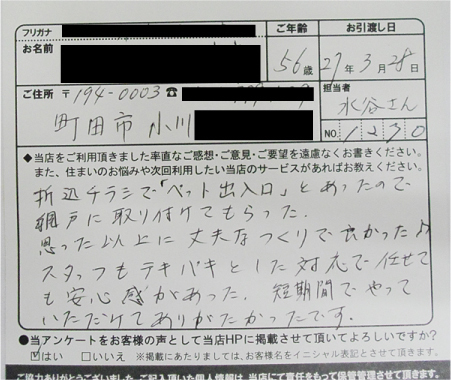 フリガナ
お名前
ご年齢
56歳
お引渡し日
27年3月28日
ご住所 〒194-0003 ☎
町田市小川
担当者
水谷さん
NO.1230
◆当店をご利用頂きました率直なご感想・ご意見・ご要望を遠慮なくお書きください。
また、住まいのお悩みや次回利用したい当店のサービスがあればお教えください。
折込チラシで「ペット出入口」とあったので
網戸に取り付けてもらった。
思った以上に丈夫なつくりで良かったよ
スタッフもテキパキとした対応で任せて
も安心感があった。短期間でやって
いただけてありがたかったです。
●当アンケートをお客様の声として当店HPに掲載させて頂いてよろしいですか?
☑はい □いいえ ※掲載にあたりましては、お客様名をイニシャル表記とさせて頂きます。
ご協力ありがとうございました。ご記入頂いた個人情報は、当店にて責任をもって保管管理させて頂きます。